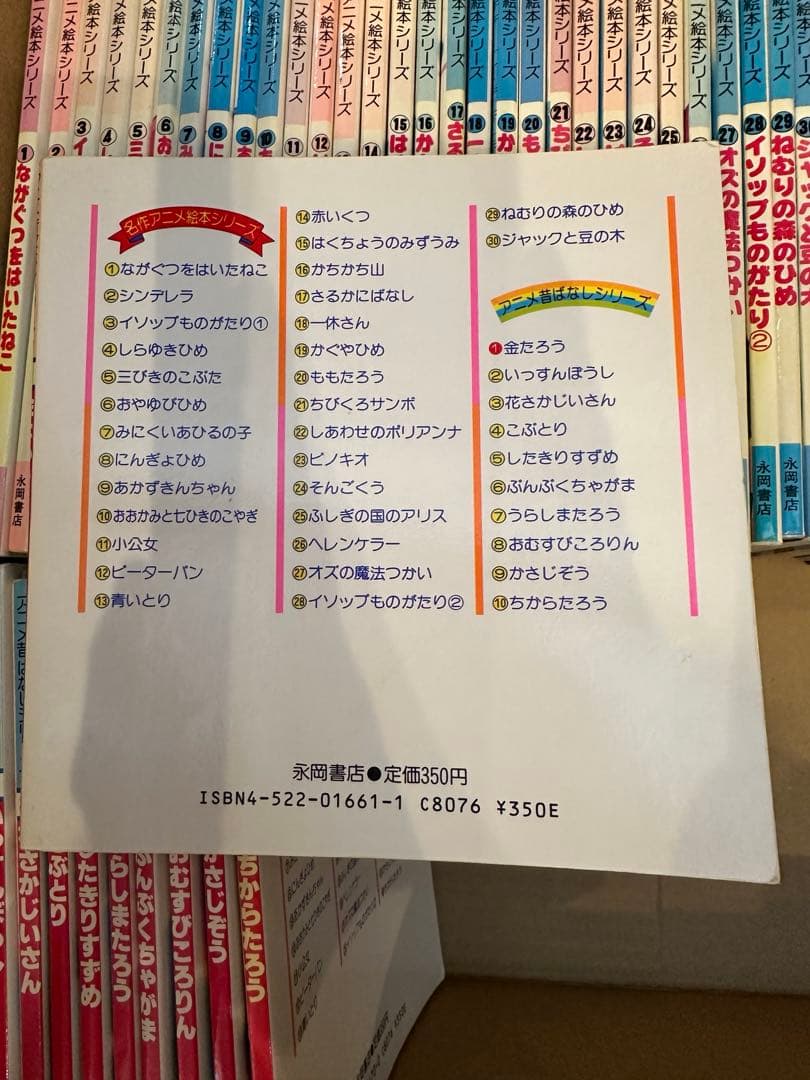 メ絵本シリーズ
ニメ絵本シリーズ
アニメ絵本シリーズ
①ながぐつをはいたねこ
㉗オズの魔法つかい
㉘イソップものがたり②
㉙ねむりの森のひめ
永岡書店
永岡書店
永岡書店
名作アニメ絵本シリーズ
①ながぐつをはいたねこ
②シンデレラ
③イソップものがたり①
④しらゆきひめ
⑤三びきのこぶた
⑥おやゆびひめ
⑦みにくいあひるの子
⑧にんぎょひめ
⑨あかずきんちゃん
⑩おおかみと七ひきのこやぎ
⑪小公女
⑫ピーターパン
⑬青いとり
⑭赤いくつ
⑮はくちょうのみずうみ
⑯かちかち山
⑰さるかにばなし
⑱一休さん
⑲かぐやひめ
⑳ももたろう
㉑ちびくろサンボ
㉒しあわせのポリアンナ
㉓ピノキオ
㉔そんごくう
㉕ふしぎの国のアリス
㉖ヘレンケラー
㉗オズの魔法つかい
㉘イソップものがたり②
㉙ねむりの森のひめ
㉚ジャックと豆の木
アニメ昔ばなしシリーズ
①金たろう
②いっすんぼうし
③花さかじいさん
④こぶとり
⑤したきりすずめ
⑥ぶんぶくちゃがま
⑦うらしまたろう
⑧おむすびころりん
⑨かさじぞう
⑩ちからたろう
永岡書店●定価350円
ISBN4-522-01661-1 C8076 ¥350E
さかじいさん
ぶとり
たきりすずめ
らしまたろう
ぶんぶくちゃがま
おむすびころりん
かさじぞう
ちからたろう